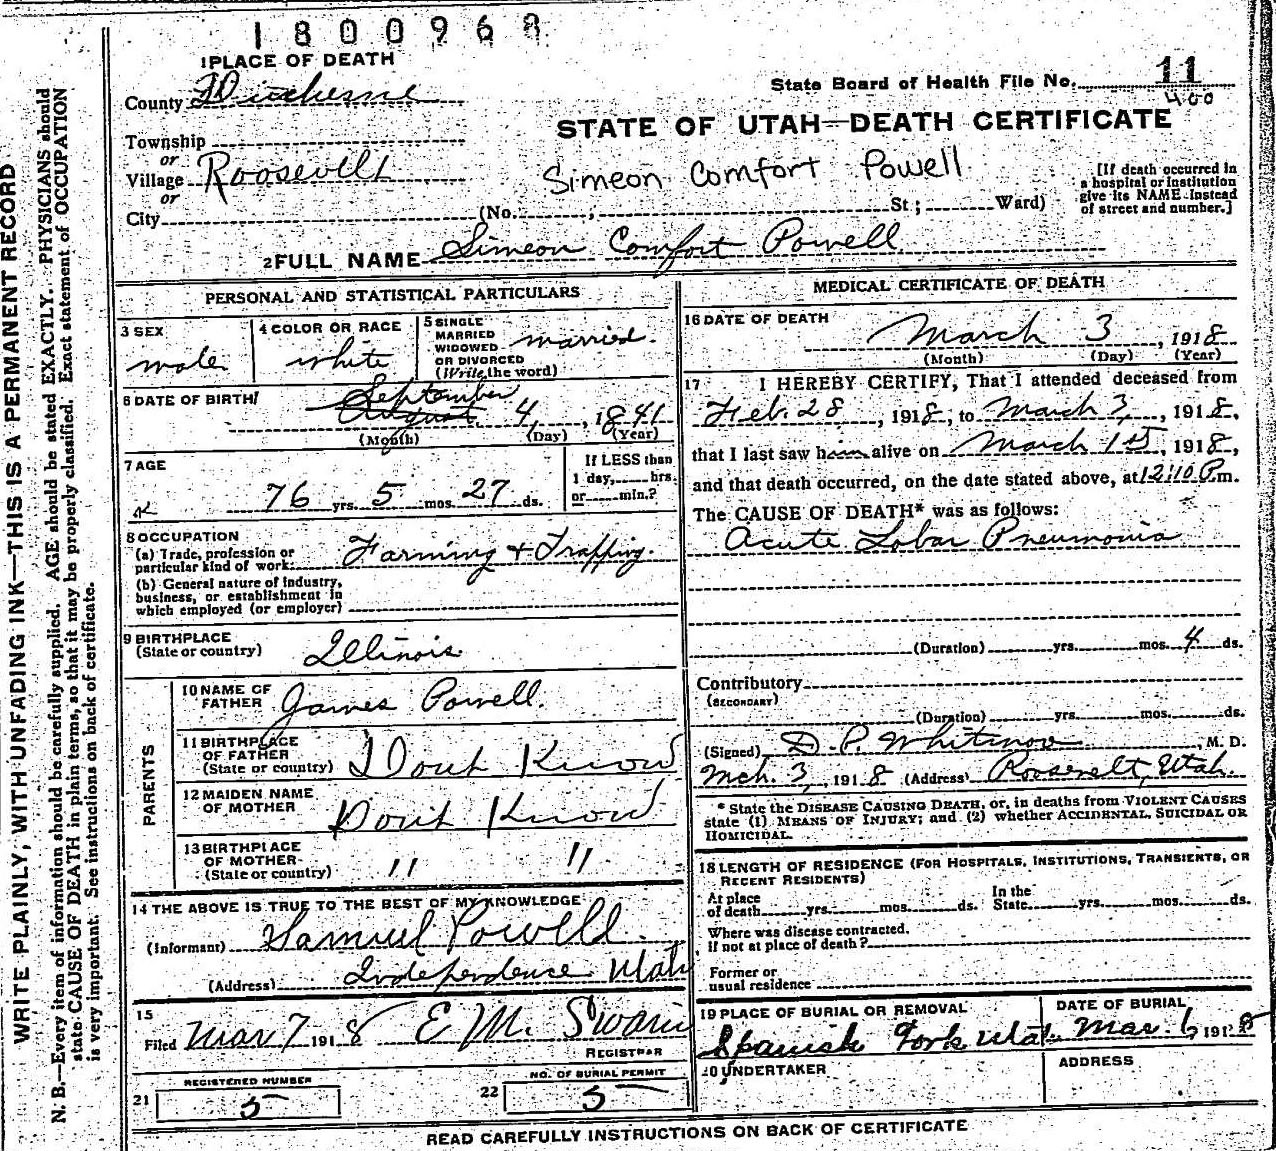 1800968
1 PLACE OF DEATH
County Duchesne
State Board of Health File No. 11
400
STATE OF UTAH—DEATH CERTIFICATE
Township
or
Village Roosevelt
or
City (No. ; St; Ward)
Simeon Comfort Powell
[If death occurred in
a hospital or institution
give its NAME instead
of street and number.]
2 FULL NAME Simeon Comfort Powell
PERSONAL AND STATISTICAL PARTICULARS
3 SEX
male
4 COLOR OR RACE
white
5 SINGLE
MARRIED
WIDOWED
OR DIVORCED
(Write the word)
married.
6 DATE OF BIRTH
September
August 4, 1841
(Month) (Day) (Year)
7 AGE
76 yrs. 5 mos. 27 ds.
If LESS than
1 day, hrs.
or min.?
8 OCCUPATION
(a) Trade, profession or
particular kind of work: Farming & Trapping.
(b) General nature of industry,
business, or establishment in
which employed (or employer)
9 BIRTHPLACE
(State or country) Illinois
PARENTS
10 NAME OF
FATHER James Powell.
11 BIRTHPLACE
OF FATHER
(State or country) Dont Know
12 MAIDEN NAME
OF MOTHER Dont Know
13 BIRTHPLACE
OF MOTHER
(State or country) " "
14 THE ABOVE IS TRUE TO THE BEST OF MY KNOWLEDGE
(Informant) Samuel Powell.
(Address) Independence Utah
15
Filed Mar 7 1918 E M. Swain
REGISTRAR
REGISTERED NUMBER
21 5
NO. OF BURIAL PERMIT
22 5
MEDICAL CERTIFICATE OF DEATH
16 DATE OF DEATH
March 3, 1918
(Month) (Day) (Year)
17 I HEREBY CERTIFY, That I attended deceased from
Feb. 28, 1918, to March 3, 1918,
that I last saw him alive on March 1st, 1918,
and that death occurred, on the date stated above, at 12:10 P.m.
The CAUSE OF DEATH* was as follows:
Acute Lobar Pneumonia
(Duration) yrs. mos. 4 ds.
Contributory
(SECONDARY)
(Duration) yrs. mos. ds.
(Signed) D. P. , M. D.
Mch. 3, 1918 (Address) Roosevelt, Utah.
* State the DISEASE CAUSING DEATH, or, in deaths from VIOLENT CAUSES
state (1) MEANS OF INJURY; and (2) whether ACCIDENTAL, SUICIDAL OR
HOMICIDAL.
18 LENGTH OF RESIDENCE (FOR HOSPITALS, INSTITUTIONS, TRANSIENTS, OR
RECENT RESIDENTS)
At place
of death yrs. mos. ds.
In the
State yrs. mos. ds.
Where was disease contracted,
If not at place of death?
Former or
usual residence
19 PLACE OF BURIAL OR REMOVAL
Spanish Fork Utah
DATE OF BURIAL
Mar. 6, 1918
20 UNDERTAKER
ADDRESS
READ CAREFULLY INSTRUCTIONS ON BACK OF CERTIFICATE
WRITE PLAINLY, WITH UNFADING INK—THIS IS A PERMANENT RECORD
N. B.—Every item of information should be carefully supplied. AGE should be stated EXACTLY. PHYSICIANS should
state CAUSE OF DEATH in plain terms, so that it may be properly classified. Exact statement of OCCUPATION
is very important. See instructions on back of certificate.